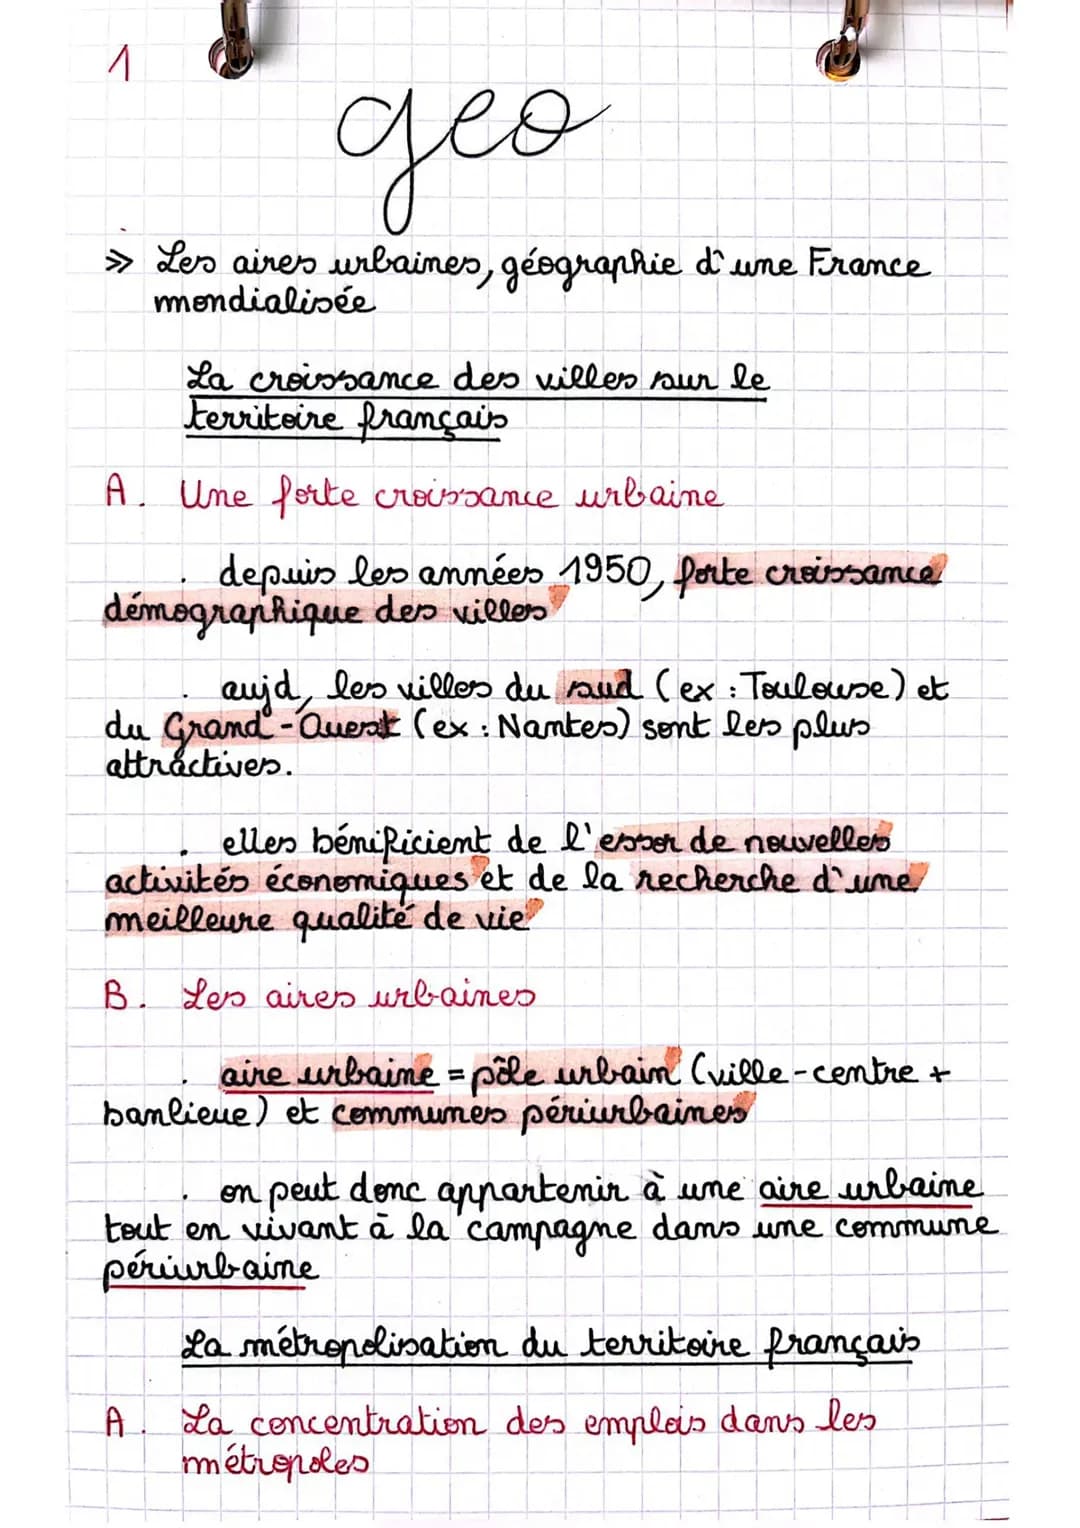 1
geo
>> Les aires urbaines, géographie d'une France
mondialisée
La croissance des villes sur le
territoire français
A. Une forte croissance urbaine
. depuis les années 1950, forte croissance
démographique des villes
. aujd, les villes du sud (ex : Toulouse) et
du Grand-Ouest (ex : Nantes) sont les plus
attractives.
. elles bénificient de l'essor de nouvelles
activités économiques et de la recherche d'une
meilleure qualité de vie
B. Les aires urbaines
. aire urbaine = pôle urbain (ville-centre +
banlieue) et communes périurbaines
. on peut donc appartenir à une aire urbaine
tout en vivant à la campagne dans une commune
périurbaine
La métropolisation du territoire français
A. La concentration des emplois dans les
métropoles